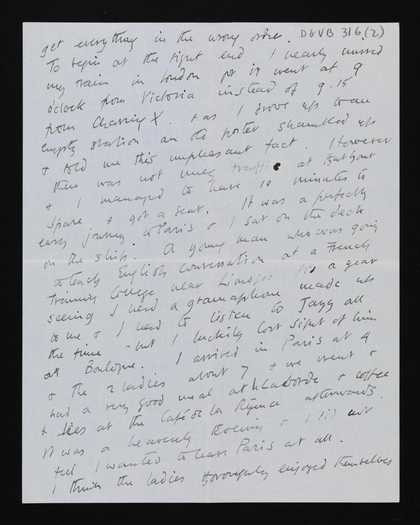 get everything in the wrong order. DGVB 316(2)
To begin at the right end I nearly missed
my train in London for it went at 9
o'clock from Victoria instead of 9.15
from Charing X. & as I drove up to an
empty station the porter shambled up
& told me this unpleasant fact. However
there was not much traffic at that hour
& I managed to have 10 minutes to
spare & got a seat. It was a perfectly
easy journey to Paris & I sat on the deck
on the ship. A young man who was going
to teach English Conversation at a French
Training College near Limoges for a year
seeing I had a gramophone made up
to me & I had to listen to Jazz all
the time but I luckily lost sight of him
at Boulogne. I arrived in Paris at 4
& the 2 ladies about 7 & we went &
had a very good meal at & coffee
& ices at the Café de la Régence afterwards.
It was a heavenly evening & I did not
feel I wanted to leave Paris at all.
I think the ladies thoroughly enjoyed themselves